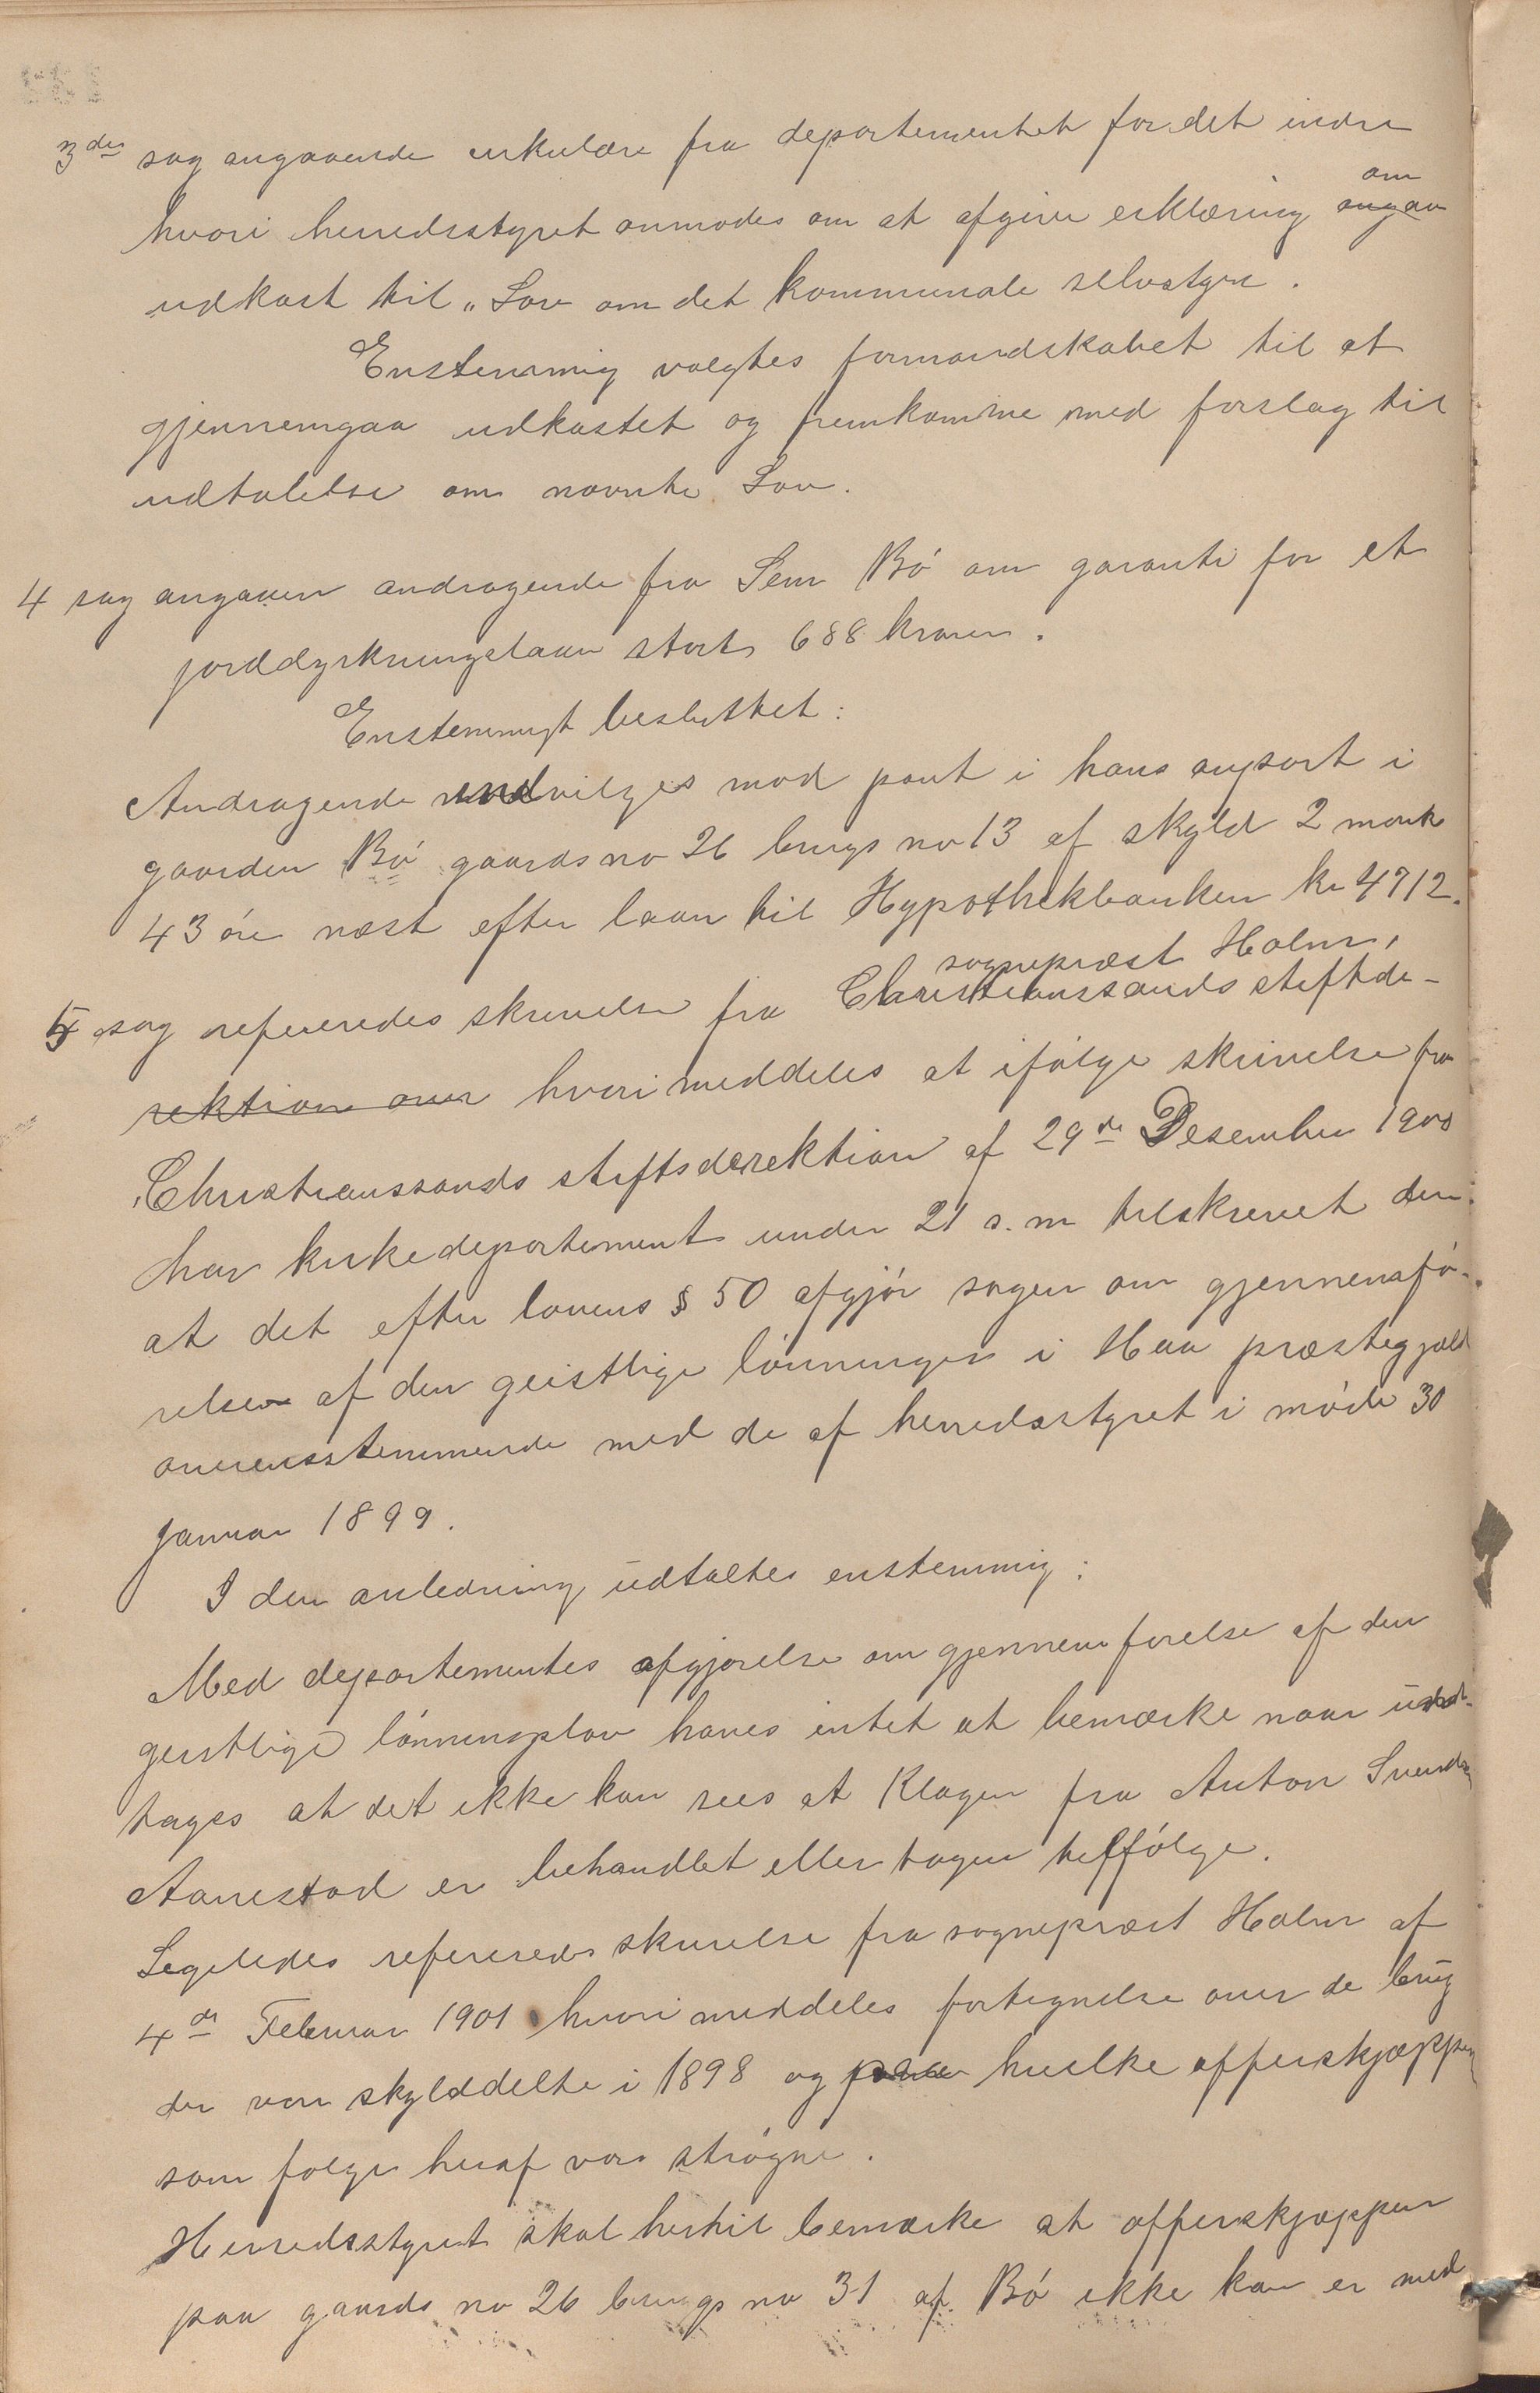 3die sag angaaende cirkulære fra departementet for det indre
hvori herredsstyret anmodes om at afgive erklæring angaa om
udkast til „Lov om det kommunale selvstyre.
Enstemmig valgtes formandskabet til at
gjennemgaa udkastet og fremkomme med forslag til
udtalelse om nævnte Lov.
4 sag angaaen andragende fra Sem Bó om garanti for et
jorddyrkningslaan stort 688 kroner.
Enstemmigt besluttet:
Andragende indvilges mod pant i hans anpart i
gaarden Bó gaards no 26 brugs no 13 af skyld 2 mark
43 øre næst efter laan til Hypothekbanken kr 4712.
sognepræst Holm,
5 sag refereredes skrivelse fra Christianssands stiftde-
rektion over hvori meddeles at ifølge skrivelse fra
Christianssands stiftsderektion af 29de Desember 1900
har kirkedepartement under 21 s. m tilskrevet den
at det efter lovens § 50 afgjór sagen om gjennemfó-
relsen af den geistlige lónninger i Haa præstegjæld
overensstemmende med de af herredsstyret i móde 30
januar 1899.
I den anledning udtaltes enstemmig:
Med departementes afgjørelse om gjennemførelse af den
geistlige lónningslov haves intet at bemærke naar und-
tages at det ikke kan sees at Klagen fra Anton Svends
Aanestad er behandlet eller tagen tilfólge.
Ligeledes refereredes skrivelse fra sognepræst Holm af
4de Februar 1901 hvori meddeles fortegnelse over de brug
der var skylddelte i 1898 og paa hvilke offerskjæppen
som følge heraf var strógne.
Herredsstyret skal hertil bemærke at offerskjæppen
paa gaards no 26 brugs no 31 af Bó ikke kan er med